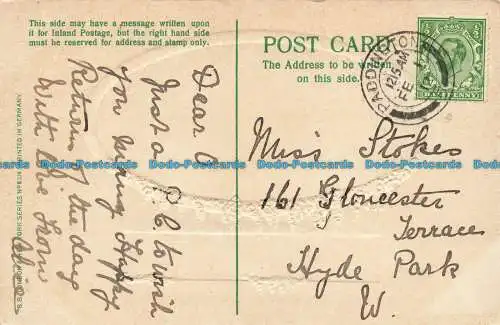 This side may have a message written upon
it for Inland Postage, but the right hand side
must be reserved for address and stamp only.
POST CARD
The Address to be written
on this side.
PADDINGTON
12.15 AM
HALFPENNY
Dear
Just a P.C. to wish
you many Happy
Returns of the day
With love from
Miss Stokes
161 Gloucester
Terrace
Hyde Park
W.
PRINTED IN GERMANY
Dodo-Postcards Dodo-Postcards Dodo-Postcards Dodo-Postcards Dodo-Postcards